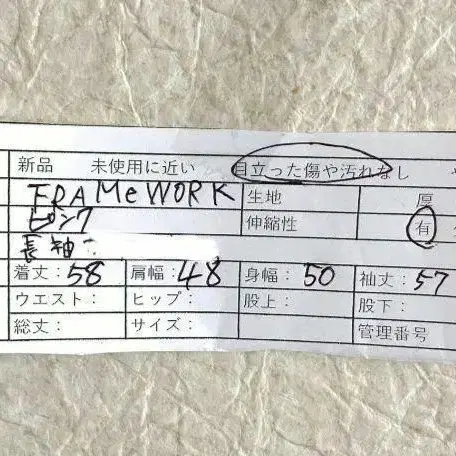 新品 未使用に近い 目立った傷や汚れなし
FRAMeWORK 生地 厚
ピンク 伸縮性 有
長袖
着丈：58 肩幅：48 身幅：50 袖丈：57
ウエスト： ヒップ： 股上： 股下：
総丈： サイズ： 管理番号